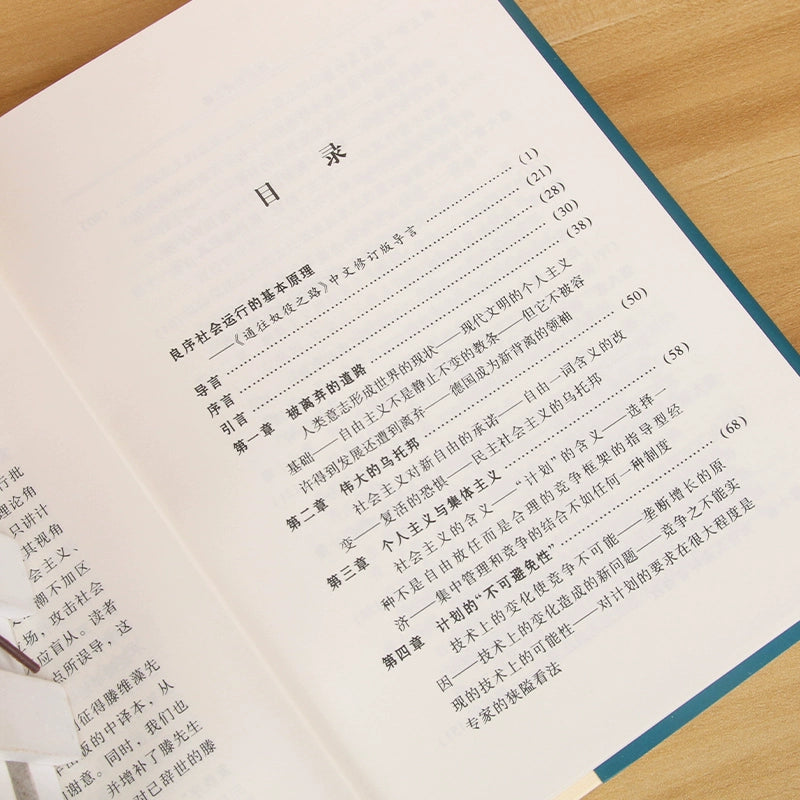 行批
理论角
只讲计
其视角
会主义、
潮不加区
场，攻击社会
应盲从。读者
点所误导，这
征得滕维藻先
版的中译本，从
谢意。同时，我们也
并增补了滕先生
对已辞世的滕
目 录
良序社会运行的基本原理
——《通往奴役之路》中文修订版导言 (1)
导言 (21)
序言 (28)
引言 (30)
第一章 被离弃的道路 (38)
人类意志形成世界的现状——现代文明的个人主义
基础——自由主义不是静止不变的教条——但它不被容
许得到发展还遭到离弃——德国成为新背离的领袖
第二章 伟大的乌托邦 (50)
社会主义对新自由的承诺——自由一词含义的改
变——复活的恐惧——民主社会主义的乌托邦
第三章 个人主义与集体主义 (58)
社会主义的含义——“计划”的含义——选择一
种不是自由放任而是合理的竞争框架的指导型经
济——集中管理和竞争的结合不如任何一种制度
第四章 计划的“不可避免性” (68)
技术上的变化使竞争不可能——垄断增长的原
因——技术上的变化造成的新问题——竞争之不能实
现的技术上的可能性——对计划的要求在很大程度是
专家的狭隘看法